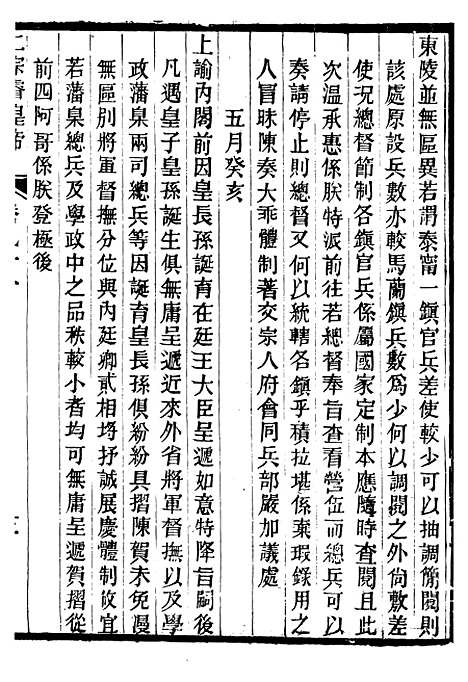 東陵並無區異若謂泰甯一鎮官兵差使較少可以抽調簡閱則
該處原設兵數亦較馬蘭鎮兵數爲少何以調閱之外尙敷差
使况總督節制各鎮官兵係屬國家定制本應隨時查閱且此
次溫承惠係朕特派前往若總督奉旨查看營伍而總兵可以
奏請停止則總督又何以統轄各鎮乎積拉堪係棄瑕錄用之
人冒昧陳奏大乖體制著交宗人府會同兵部嚴加議處
五月癸亥
上諭內閣前因皇長孫誕育在廷王大臣呈遞如意特降旨嗣後
凡遇皇子皇孫誕生俱無庸呈遞近來外省將軍督撫以及學
政藩臬兩司總兵等因誕育皇長孫俱紛紛具摺陳賀未免漫
無區別將軍督撫分位與內廷卿貳相埒抒誠展慶體制攸宜
若藩臬總兵及學政中之品秩較小者均可無庸呈遞賀摺從
前四阿哥係朕登極後
仁宗睿皇帝